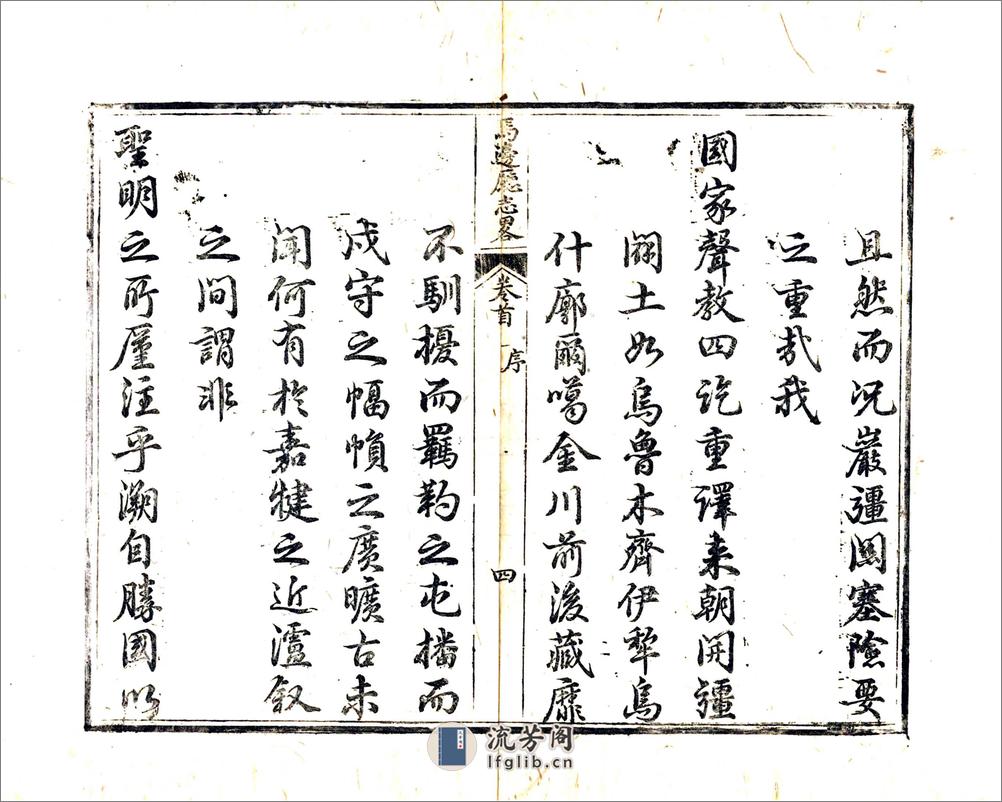 且然而况巖疆関塞險要
之重哉我
國家聲教四訖重譯来朝開疆
闢土如烏魯木齊伊犂烏
什廓爾噶金川前後藏靡
馬邊廳志畧 卷首 序 四
不馴擾而羈勒之屯播而
戍守之幅幀之廣曠古未
聞何有於嘉犍之近瀘叙
之間謂非
聖明之所廑注乎溯自勝國以
流芳阁
lfglib.cn